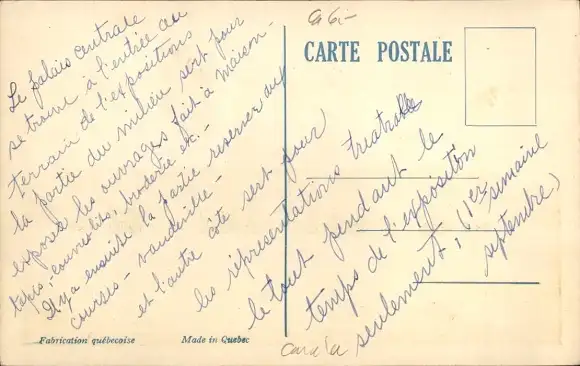 CARTE POSTALE
Le palais centrale
se trouve à l'entrée du
terrain de l'expositions
la partie du milieu sert pour
exposer les ouvrages fait à maison -
tapis, couvre-lits, broderie etc. -
Il y a ensuite la partie réservée aux
courses - vaudeville -
et l'autre côté sert pour
les réprésentations théatrales
le tout pendant le
temps de l'exposition
seulement, (1er semaine
septembre)
Fabrication québecoise
Made in Quebec